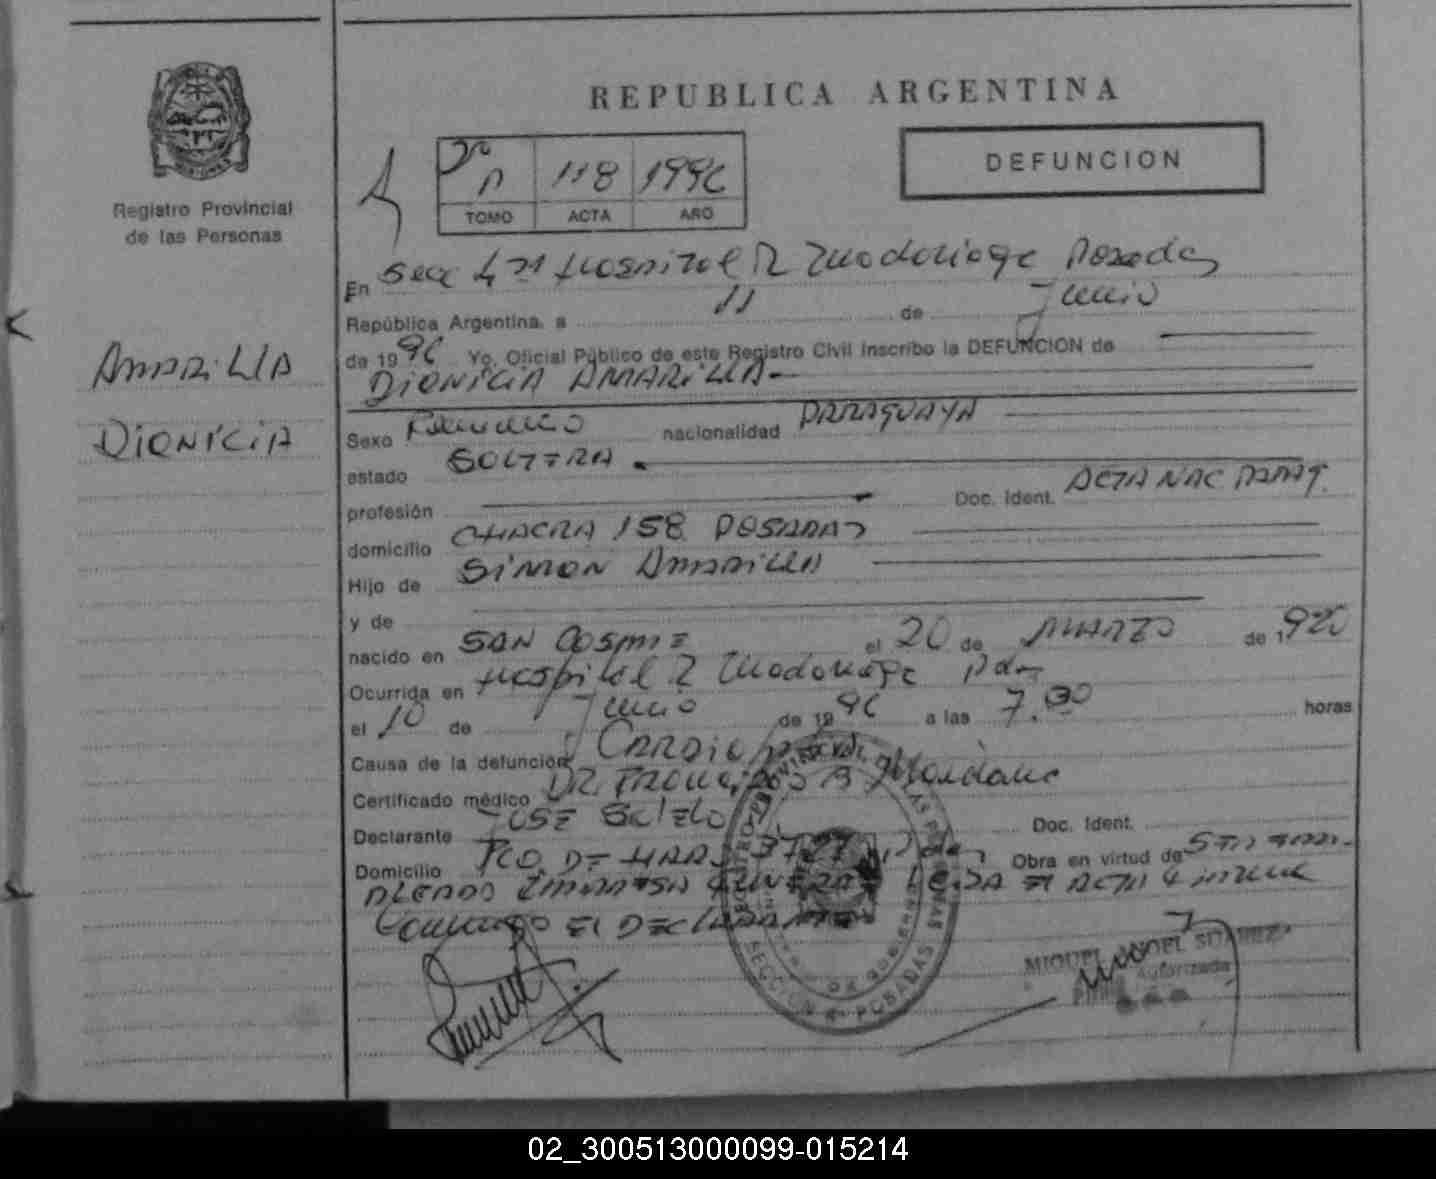 REPUBLICA ARGENTINA
DEFUNCION
118 1996
TOMO ACTA AÑO
Registro Provincial
de las Personas
AMARILLA
DIONICIA
En Secc 4 Hospital R Madariaga Posadas
República Argentina, a 11 de Junio
de 1996 Yo, Oficial Público de este Registro Civil inscribo la DEFUNCION de
DIONICIA AMARILLA
Sexo Femenino nacionalidad PARAGUAYA
estado SOLTERA
profesión Doc. Ident. ACTA NAC PARAG.
domicilio CHACRA 158 POSADAS
Hijo de SIMON AMARILLA
y de
nacido en SAN COSME el 20 de MARZO de 1920
Ocurrida en Hospital R Madariaga Pdas
el 10 de Junio de 1996 a las 7.30 horas
Causa de la defunción
Certificado médico DR.
Declarante JOSE SOTELO Doc. Ident.
Domicilio FCO DE HARO 3727 Pdas Obra en virtud de SER EM-
PLEADO EMPRESA FUNEBRE LEIDA EL ACTA FIRMA
Conmigo EL DECLARANTE
REGISTRO PROVINCIAL DE LAS PERSONAS
SECCION 4ª POSADAS
MIGUEL ANGEL SUAREZ
Autorizada
02_300513000099-015214